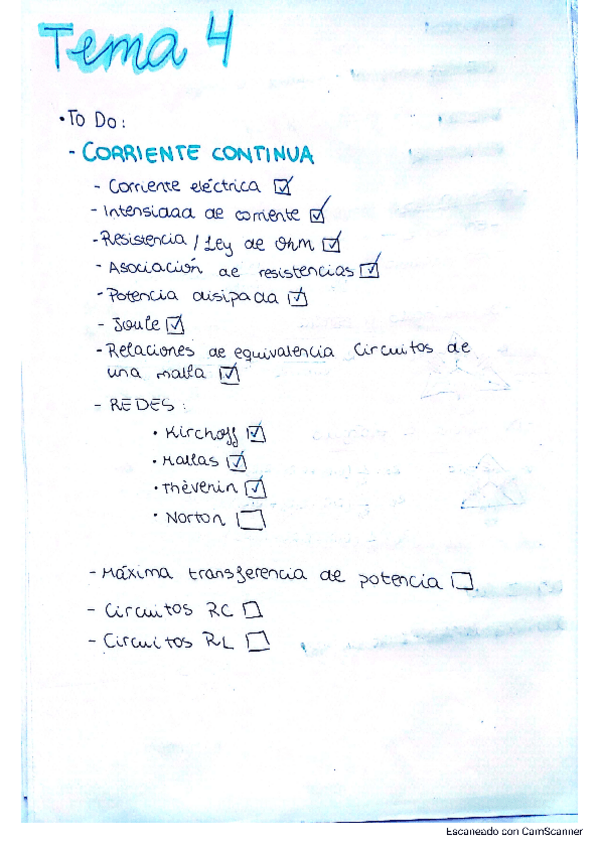 Tema 4
• To Do:
- CORRIENTE CONTINUA
- Corriente eléctrica ☑
- Intensidad de corriente ☑
- Resistencia / Ley de Ohm ☑
- Asociación de resistencias ☑
- Potencia disipada ☑
- Joule ☑
- Relaciones de equivalencia Circuitos de
una malla ☑
- REDES:
• Kirchoff ☑
• Mallas ☑
• Thèvenin ☑
• Norton ☐
- Máxima transferencia de potencia ☐
- Circuitos RC ☐
- Circuitos RL ☐
Escaneado con CamScanner